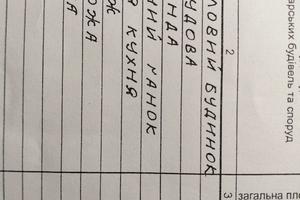 арських будівель та споруд
2
ЛОВИЙ БУДИНОК
УДОВА
НДА
НИЙ ГАНОК
КУХНЯ
Ж
ОЖА
А
3
загальна пло